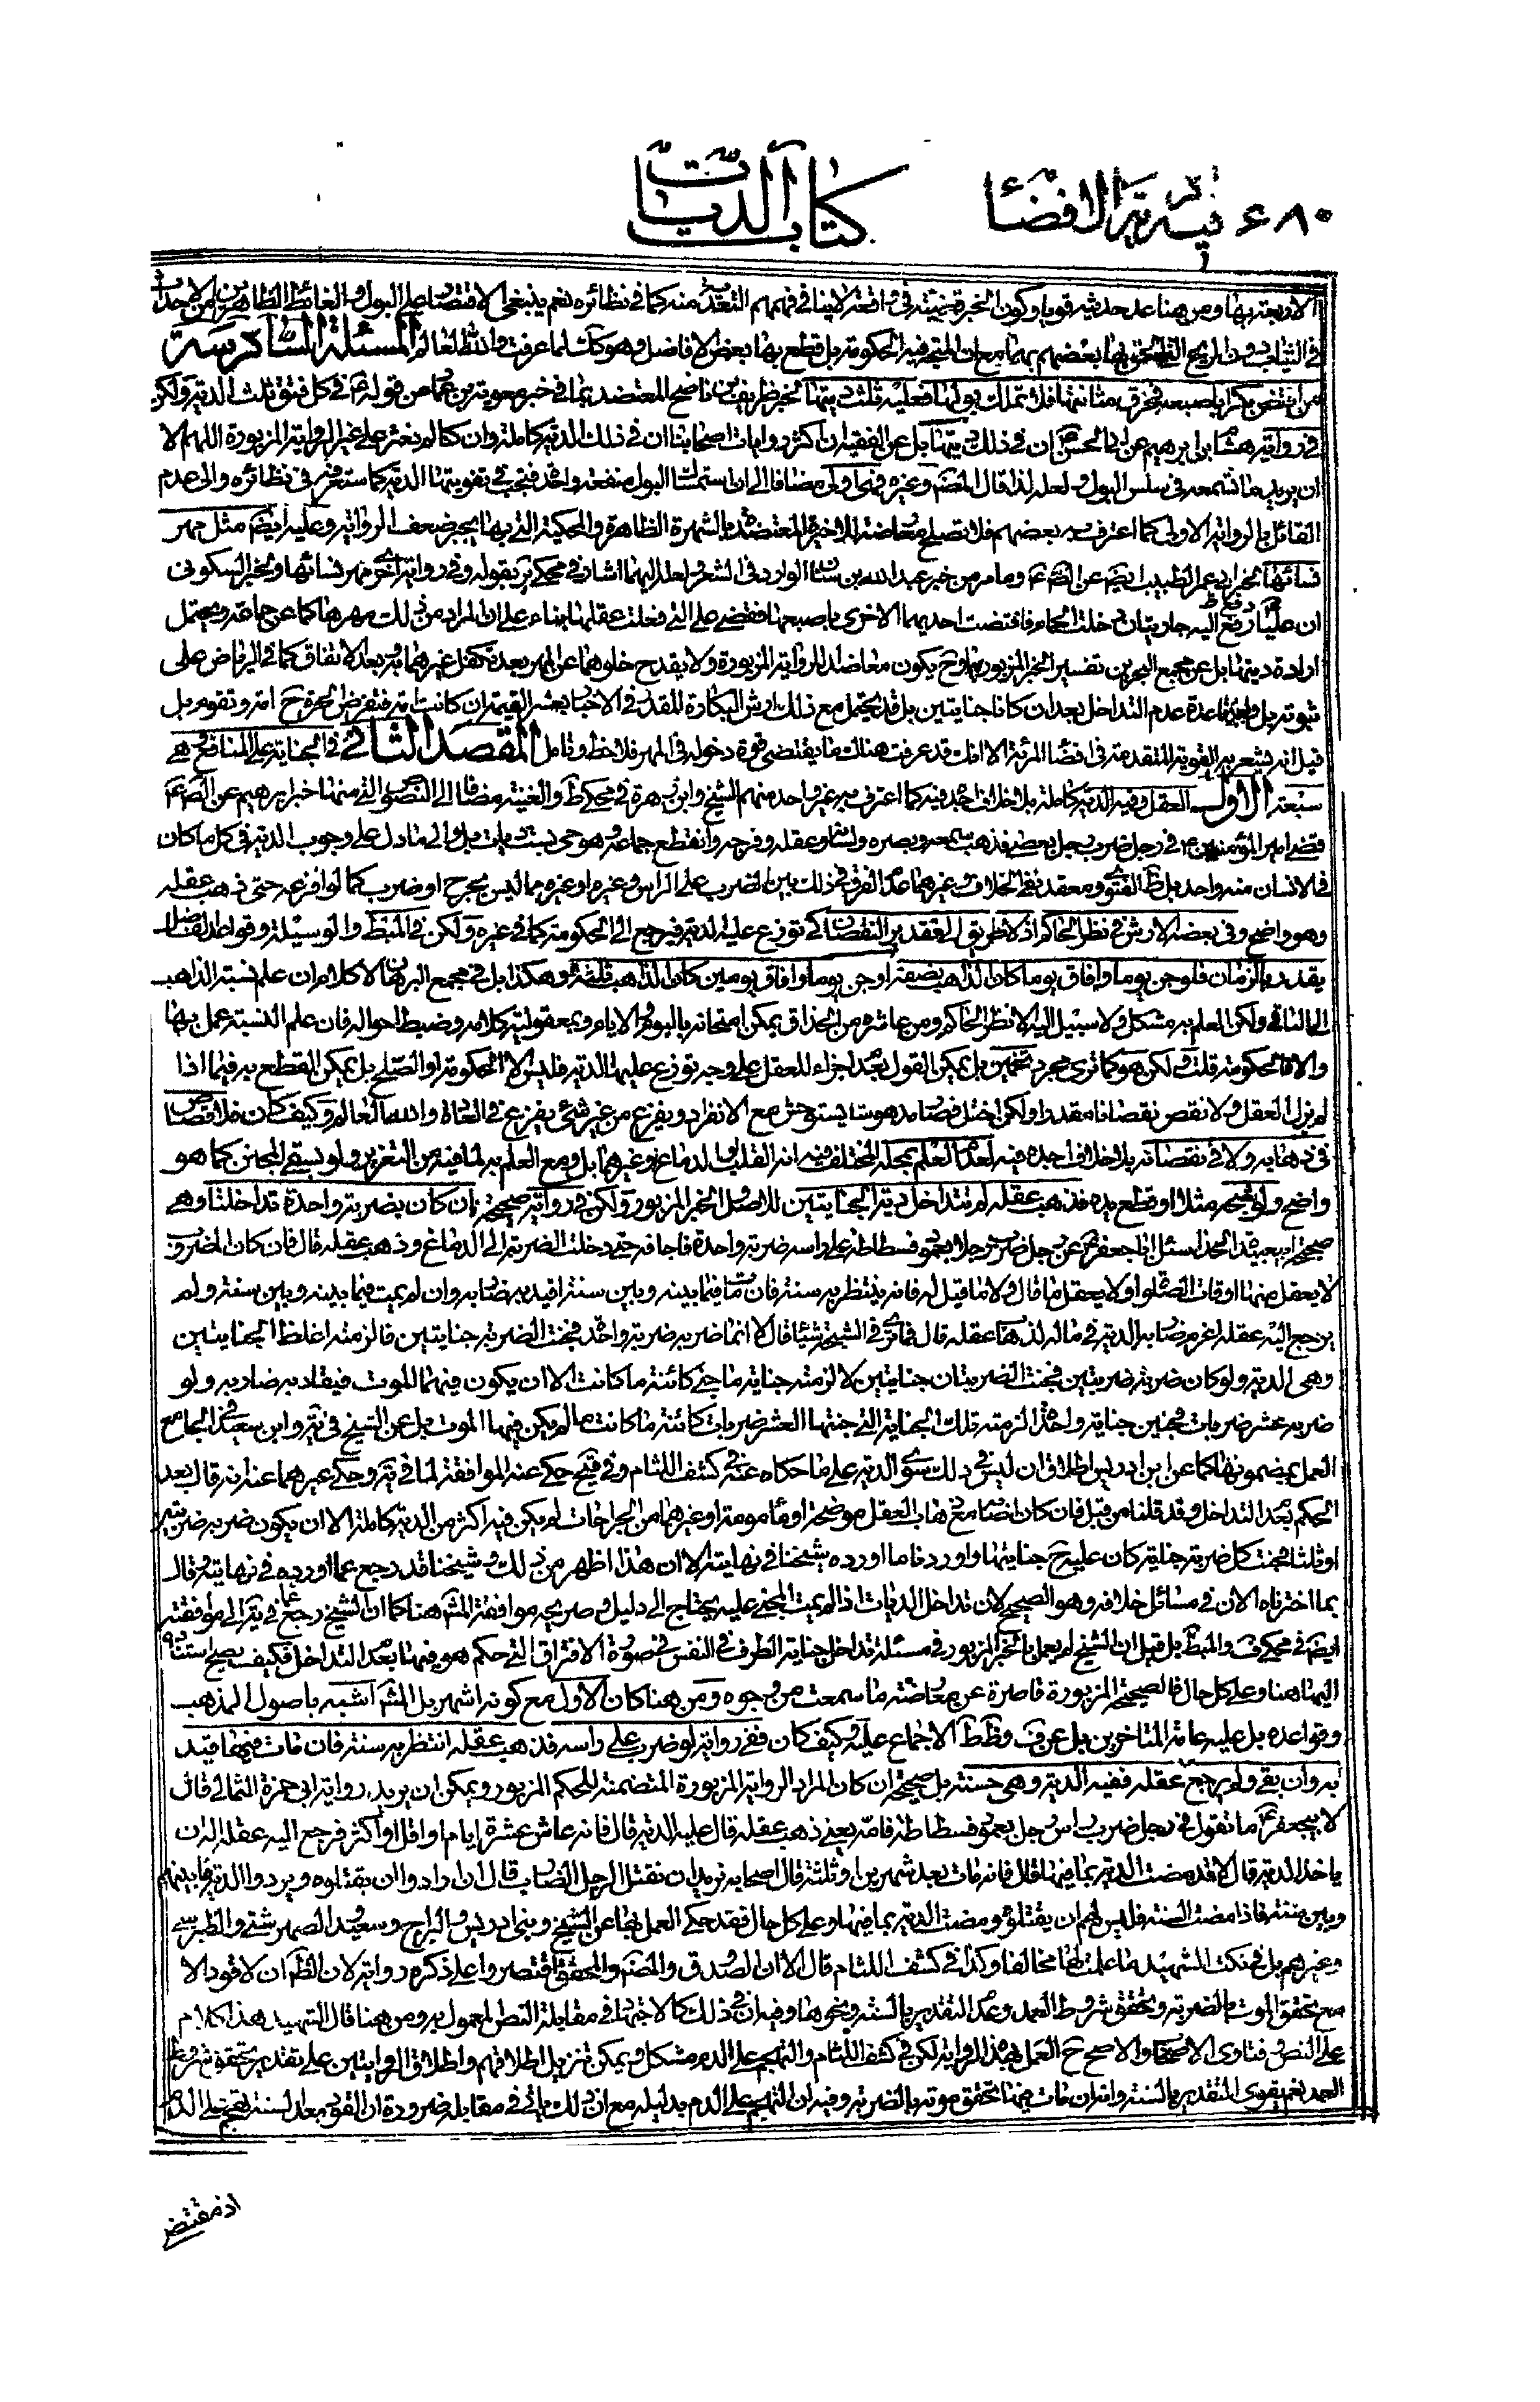 ٦٨٠ في دية الافضاء
كتاب الديات
الاربعة بها ومن هنا عد حديثه قويا وكون الخبر قضية في واقعة لا ينافي فهمهم التعدية منه كما في نظائره نعم ينبغي الاقتصار على البول والغائط الظاهرين من الحدث
في الثياب دون الريح التي الحق بها بعضهم بهما مع ان المتجه فيه الحكومة بل قطع بها بعض الافاضل وهو كك لما عرفت والله العالم المسئلة السادسة
من افتض بكرا باصبعه فخرق مثانتها فلا تملك بولها فعليه ثلث ديتها لخبر ظريف بن ناصح المعتضد بما في خبر معوية بن عمار من قوله ع في كل فتق ثلث الدية ولكن
في رواية هشام بن ابراهيم عن ابي الحسن ع ان في ذلك ديتها بل عن الفقيه ان اكثر روايات اصحابنا ان في ذلك الدية كاملة وان كنا لم نعثر على غير الرواية المزبورة اللهم الا
ان يريد ما تسمعه في سلس البول ولعله لذا قال المصنف وغيره فهي اولى مضافا الى ان استمساك البول منفعة واحدة فتجب في تفويتها الدية كما ستعرفه في نظائره والى عدم
القائل بالرواية الاولى كما اعترف به بعضهم فلا تصلح معارضة للاخيرة المعتضدة بالشهرة الظاهرة والمحكية التي بها ينجبر ضعف الرواية وعليه ايضا مثل مهر
نسائها لخبر ابي عمر الطبيب ايضا عن الصادق ع وما مر من خبر عبد الله بن سنان الوارد في الشعر ولعله اليهما اشار في محكي ير بقوله وفي رواية اخرى مهر نسائها ولخبر السكوني
ان عليا ع رفع اليه جاريتان دخلتا الحمام فافتضت احديهما الاخرى باصبعها فقضى على التي فعلت عقلها بناء على ان المراد من ذلك مهرها كما عن جماعة ويحتمل
ارادة ديتها بل عن مجمع البحرين تفسير الخبر المزبور بها وح يكون معاضدا للرواية المزبورة ولا يقدح خلوهما عن المهر بعد تكفل غيرهما به بعد الاتفاق كما في الرياض على
ثبوته بل ولعله قاعدة عدم التداخل بعد ان كانا جنايتين بل قد يحتمل مع ذلك ارش البكارة المقدر في الاخبار بعشر القيمة ان كانت امة فتفرض الحرة ح امة وتقوم بل
قيل انه يشعر به القوية المتقدمة في افضاء المرئة الا انك قد عرفت هناك ما يقتضي قوة دخوله في المهر فلاحظ وتامل المقصد الثاني في الجناية على المنافع وهي
سبعة الاول العقل وفيه الدية كاملة بلا خلاف اجده فيه كما اعترف به غير واحد منهم الشيخ وابن زهرة في محكي ط والغنية مضافا الى النصوص التي منها خبر ابرهيم عن الصادق ع
قضى امير المؤمنين ع في رجل ضرب رجلا بعصا فذهب سمعه وبصره ولسانه وعقله وفرجه وانقطع جماعه وهو حي بست ديات بل والى ما دل على وجوب الدية في كل ما كان
في الانسان منه واحد بل ظ الفتوى ومعقد نفي الخلاف وغيرهما عدم الفرق في ذلك بين الضرب على الراس وغيره او غيره مما ليس بجرح او ضرب كما لو افزعه حتى ذهب عقله
وهو واضح وفي بعضه الارش في نظر الحاكم اذ لا طريق الى تقدير النقصان كي توزع عليه الدية فيرجع الى الحكومة كما في غيره ولكن في المبسوط والوسيلة وقواعد الفاضل
يقدر بالزمان فلو جن يوما وافاق يوما كان الذاهب نصفه او جن يوما وافاق يومين كان الذاهب ثلثه وهكذا بل في مجمع البرهان لا كلام ان علم نسبة الذاهب
الى الباقي ولكن العلم به مشكل ولا سبيل اليه الا نظر الحاكم ومن عاشره من الحذاق يمكن امتحانه باليوم والايام وبمعقولية كلامه وضبط احواله فان علم النسبة عمل بها
والا فالحكومة قلت ولكن هو كما ترى مجرد تخمين بل يمكن القول بعدم اجزاء للعقل على وجه توزع عليها الدية فليس الا الحكومة او الصلح بل يمكن القطع به فيما اذا
لم يزل العقل ولا نقص نقصانا مقدرا ولكن اختل فصار مدهوشا يستوحش مع الانفراد ويفزع من غير شيء يفزع في العادة والله العالم وكيف كان فلا قصاص
في ذهابه ولا في نقصانه بلا خلاف اجده فيه لعدم العلم بمحله المختلف فيه انه القلب او الدماغ او غيرهما بل ومع العلم به لما فيه من التغرير ولو بسقي المجنن كما هو
واضح ولو شجه مثلا او قطع يده فذهب عقله لم تتداخل دية الجنايتين للاصل والخبر المزبور ولكن في رواية صحيحة ان كان بضربة واحدة تداخلتا وهي
صحيحة ابي عبيدة الحذاء سئل ابا جعفر ع عن رجل ضرب رجلا بعمود فسطاط على راسه ضربة واحدة فاجافه حتى دخلت الضربة الى الدماغ وذهب عقله قال فان كان المضروب
لا يعقل منها اوقات الصلوة ولا يعقل ما قال ولا ما قيل له فانه ينتظر به سنة فان مات فيما بينه وبين سنة اقيد به ضاربه وان لم يمت فيما بينه وبين سنة ولم
يرجع اليه عقله اغرم ضاربه الدية في ماله لذهاب عقله قال فما ترى في الشجة شيئا قال لا انما ضربه ضربة واحدة فجنت الضربة جنايتين فالزمته اغلظ الجنايتين
وهي الدية ولو كان ضربه ضربتين فجنت الضربتان جنايتين لالزمته جناية ما جنى كائنة ما كانت الا ان يكون فيهما الموت فيقاد به ضاربه ولو
ضربه عشر ضربات فجنين جناية واحدة الزمته تلك الجناية التي جنتها العشر ضربات كائنة ما كانت ما لم يكن فيها الموت بل عن الشيخ في ية وابن سعيد في الجامع
العمل بمضمونها كما عن ابن ادريس اطلاق ان ليس في ذلك سوى الدية على ما حكاه عنه في كشف اللثام وفي قبح حكى عنه الموافقة لما في ية وحكى غيرهما عنه انه قال بعد
الحكم بعدم التداخل وقد قلنا من قبل فان كان اصابه مع ذهاب العقل موضحة او مأمومة او غيرهما من الجراحات لم يكن فيه اكثر من الدية كاملة الا ان يكون ضربه ضربتين
او ثلثا فجنت كل ضربة جناية كان عليه ح جنايتها واوردنا ما اورده شيخنا في نهايته الا ان هذا اظهر من ذلك وشيخنا قد رجع عما اورده في نهايته وقال
بما اخترناه الان في مسائل خلافه وهو الصحيح لان تداخل الديات اذا لم يمت المجني عليه يحتاج الى دليل وصريحه موافقة المشهور هنا كما ان الشيخ رجع عما في ية الى موافقته
ايضا في محكي ف والمبسوط بل قيل ان الشيخ لم يعمل بالخبر المزبور في مسئلة تداخل جناية الطرف في النفس في صورة الافتراق التي حكم هو فيها بعدم التداخل فكيف يصح استناده
اليها هنا وعلى كل حال فالصحيحة المزبورة قاصرة عن معارضة ما سمعت من وجوه ومن هنا كان الاول مع كونه اشهر بل المشهور اشبه باصول المذهب
وقواعده بل عليه عامة المتاخرين بل عن ف وظ ط الاجماع عليه وكيف كان ففي رواية لو ضرب على راسه فذهب عقله انتظر به سنة فان مات فيها قيد
به وان بقي ولم يرجع عقله ففيه الدية وهي حسنة بل صحيحة ان كان المراد الرواية المزبورة المتضمنة للحكم المزبور ويمكن ان يريد رواية ابي حمزة الثمالي قال
لابي جعفر ع ما تقول في رجل ضرب راس رجل بعمود فسطاط فامه يعني ذهب عقله قال عليه الدية قال فانه عاش عشرة ايام او اقل او اكثر فرجع اليه عقله اله ان
ياخذ الدية قال لا قد مضت الدية بما فيها قال فانه مات بعد شهرين او ثلثة قال اصحابه نريد ان نقتل الرجل الضارب قال ان ارادوا ان يقتلوه ويردوا الدية ما بينهم
وبين سنة فاذا مضت السنة فليس لهم ان يقتلوه ومضت الدية بما فيها وعلى كل حال فقد حكى العمل بها عن الشيخ وبني ادريس والبراج وسعيد والصهرشتي والطبرسي
وغيرهم بل في نكت الشهيد ما علمت لها مخالفا وكذا في كشف اللثام قال الا ان الصدوق والمصنف والمحقق اقتصروا على ذكره رواية لان الظاهر ان لا قود الا
مع تحقق الموت بالضربة وتحقق شروط العمد وعدم التقدير بالسنة ونحوها وفيه ان ذلك كالاجتهاد في مقابلة النص المعمول به ومن هنا قال الشهيد هذا كلام
على النص وفتاوى الاصحاب والاصح ح العمل بهذه الرواية لكن في كشف اللثام والتهجم على الدم مشكل ويمكن تنزيل اطلاقهم واطلاق الروايتين على تقدير تحقق شروط
العمد نعم يقوى التقدير بالسنة وانه ان مات فيها تحقق موته بالضربة وفيه ان التهجم على الدم بدليله مع ان ذلك ياتي في مقابله ضرورة ان القود بعد السنة تهجم على الدم
اذ مقتضى